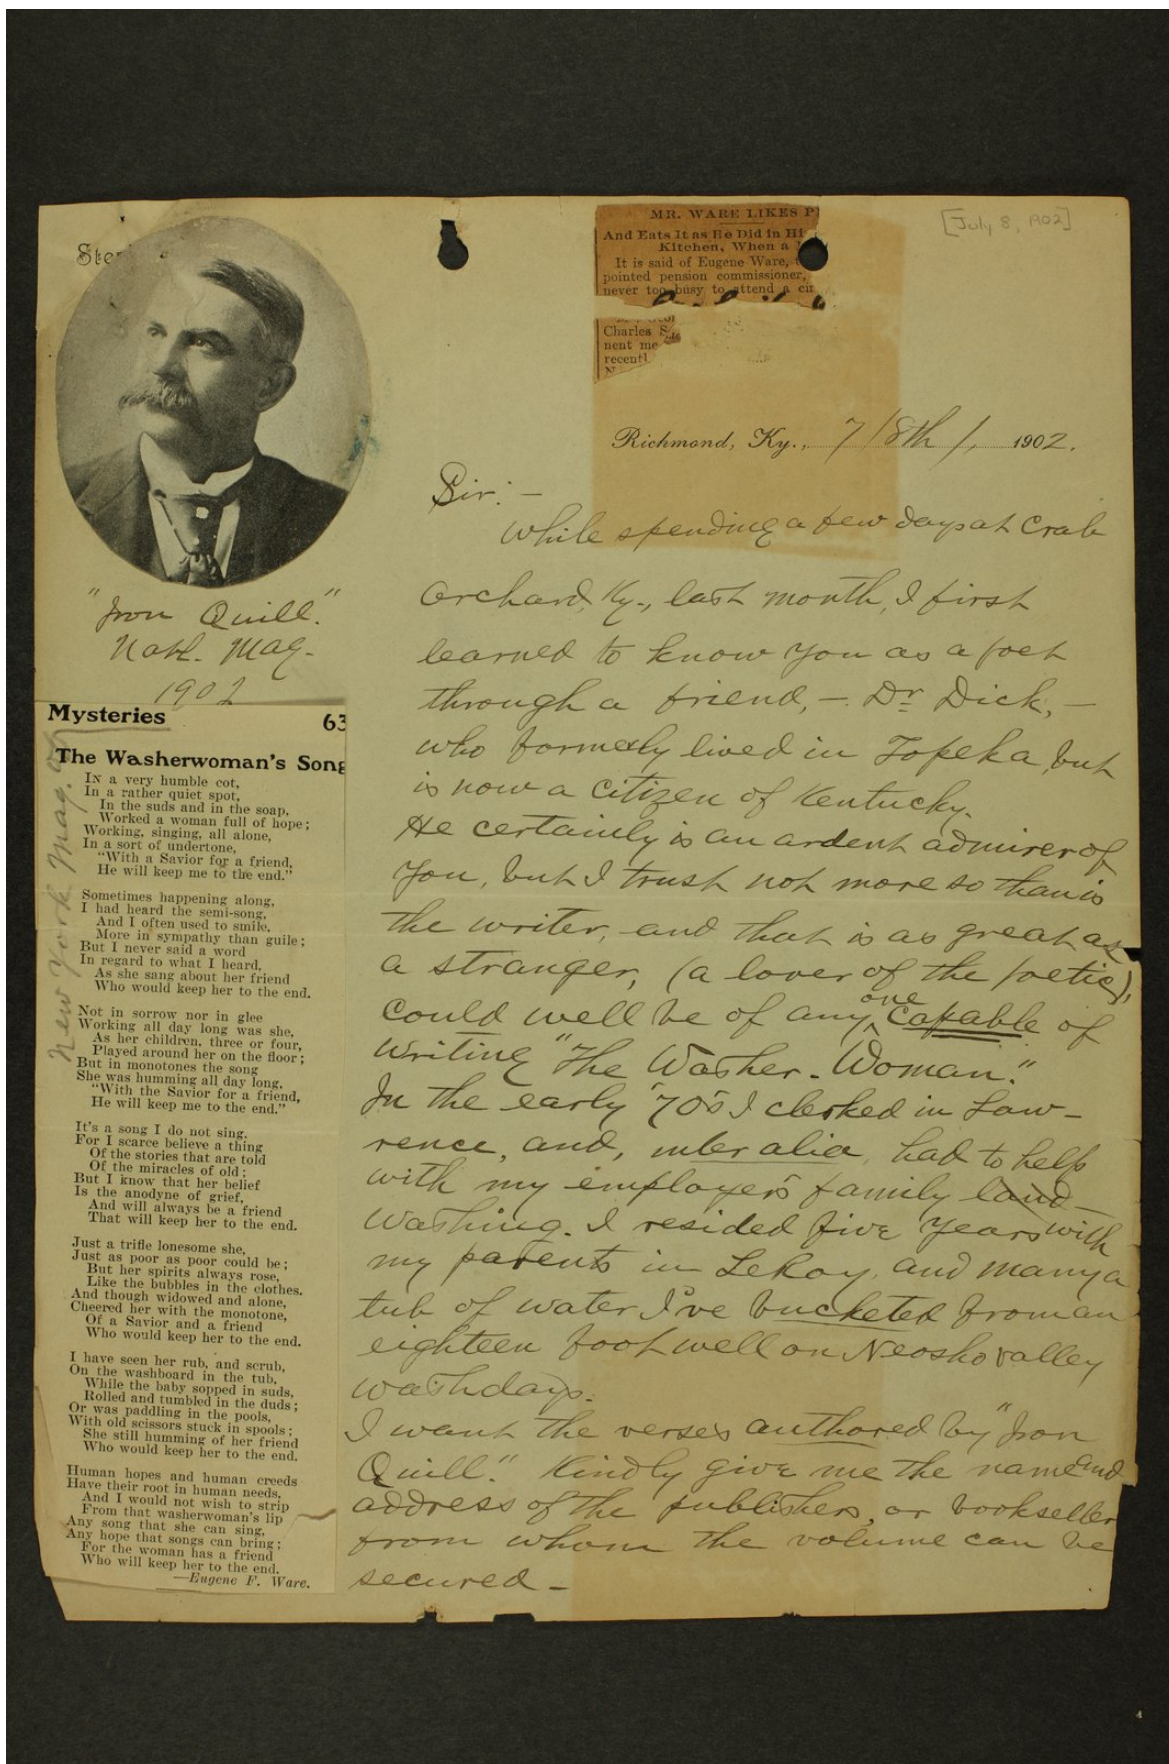 Ster
"Iron Quill."
Natl. Mag.
1902
Mysteries 63
New York Mag. of
The Washerwoman's Song
In a very humble cot,
In a rather quiet spot,
In the suds and in the soap,
Worked a woman full of hope;
Working, singing, all alone,
In a sort of undertone,
"With a Savior for a friend,
He will keep me to the end."
Sometimes happening along,
I had heard the semi-song,
And I often used to smile,
More in sympathy than guile;
But I never said a word
In regard to what I heard,
As she sang about her friend
Who would keep her to the end.
Not in sorrow nor in glee
Working all day long was she,
As her children, three or four,
Played around her on the floor;
But in monotones the song
She was humming all day long,
"With the Savior for a friend,
He will keep me to the end."
It's a song I do not sing,
For I scarce believe a thing
Of the stories that are told
Of the miracles of old;
But I know that her belief
Is the anodyne of grief,
And will always be a friend
That will keep her to the end.
Just a trifle lonesome she,
Just as poor as poor could be;
But her spirits always rose,
Like the bubbles in the clothes.
And though widowed and alone,
Cheered her with the monotone,
Of a Savior and a friend
Who would keep her to the end.
I have seen her rub, and scrub,
On the washboard in the tub,
While the baby sopped in suds,
Rolled and tumbled in the duds;
Or was paddling in the pools,
With old scissors stuck in spools;
She still humming of her friend
Who would keep her to the end.
Human hopes and human creeds
Have their root in human needs,
And I would not wish to strip
From that washerwoman's lip
Any song that she can sing,
Any hope that songs can bring;
For the woman has a friend
Who will keep her to the end.
—Eugene F. Ware.
MR. WARE LIKES P
And Eats It as He Did in Hi
Kitchen, When a
It is said of Eugene Ware,
pointed pension commissioner,
never too busy to attend a cir
Charles S
nent me
recentl
N
[July 8, 1902]
Richmond, Ky., 7/8th/, 1902.
Sir:—
While spending a few days at Crab
Orchard, Ky., last month, I first
learned to know you as a poet
through a friend,—Dr. Dick,—
who formerly lived in Topeka, but
is now a citizen of Kentucky.
He certainly is an ardent admirer of
you, but I trust not more so than is
the writer, and that is as great as
a stranger, (a lover of the poetic),
could well be of any one capable of
writing "The Washer-Woman."
In the early '70s I clerked in Law-
rence, and, inter alia, had to help
with my employer's family land
washing. I resided five years with
my parents in LeRoy, and many a
tub of water I've bucketed from an
eighteen foot well on Neosho valley
washdays.
I want the verses authored by "Iron
Quill." Kindly give me the name and
address of the publishers, or bookseller
from whom the volume can be
secured—